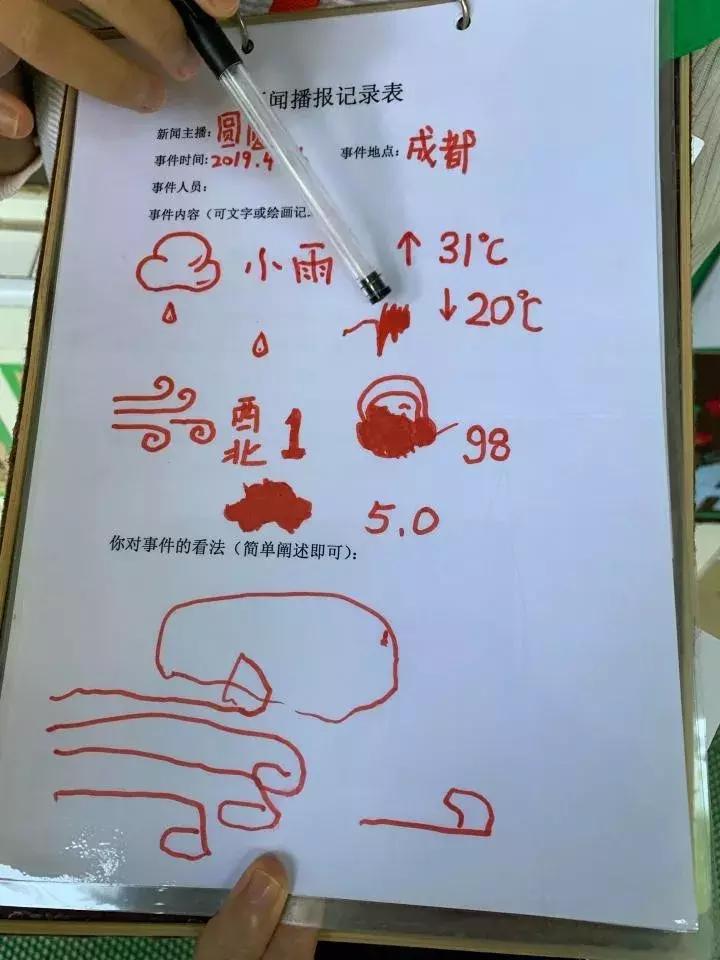 闻播报记录表
新闻主播：圆
事件时间：2019.4 事件地点：成都
事件人员：
事件内容（可文字或绘画记
小雨 ↑31℃
↓20℃
西北 1 98
5.0
你对事件的看法（简单阐述即可）：